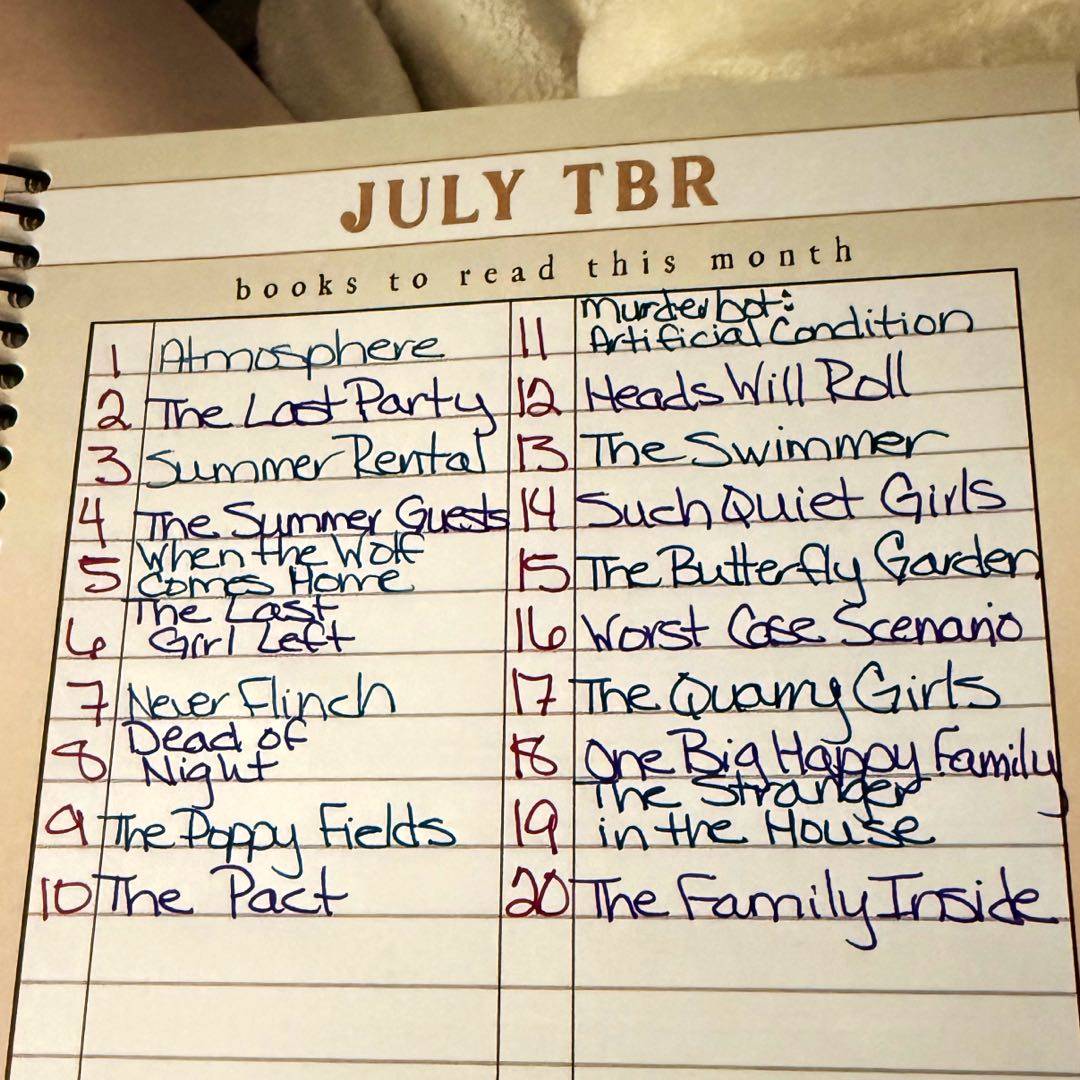 JULY TBR
books to read this month
1 Atmosphere
2 The Last Party
3 Summer Rental
4 The Summer Guests
5 When the Wolf
Comes Home
6 The Last
Girl Left
7 Never Flinch
8 Dead of
Night
9 The Poppy Fields
10 The Pact
11 Murderbot:
Artificial Condition
12 Heads Will Roll
13 The Swimmer
14 Such Quiet Girls
15 The Butterfly Garden
16 Worst Case Scenario
17 The Quarry Girls
18 One Big Happy Family
19 The Stranger
in the House
20 The Family Inside